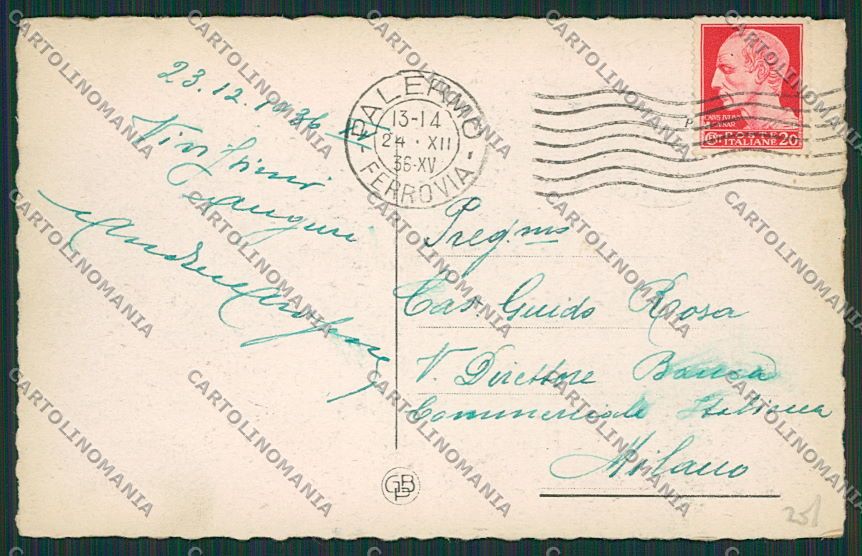 23.12.1936 XV
Vivissimi
auguri
PALERMO
13-14
24·XII
36·XV
FERROVIA
CAIVS IVLIVS
CAESAR
POSTE
ITALIANE 20
Preg.mo
Cav. Guido Rosa
V. Direttore Banca
Commerciale Italiana
Milano
GBP
251
CARTOLINOMANIA